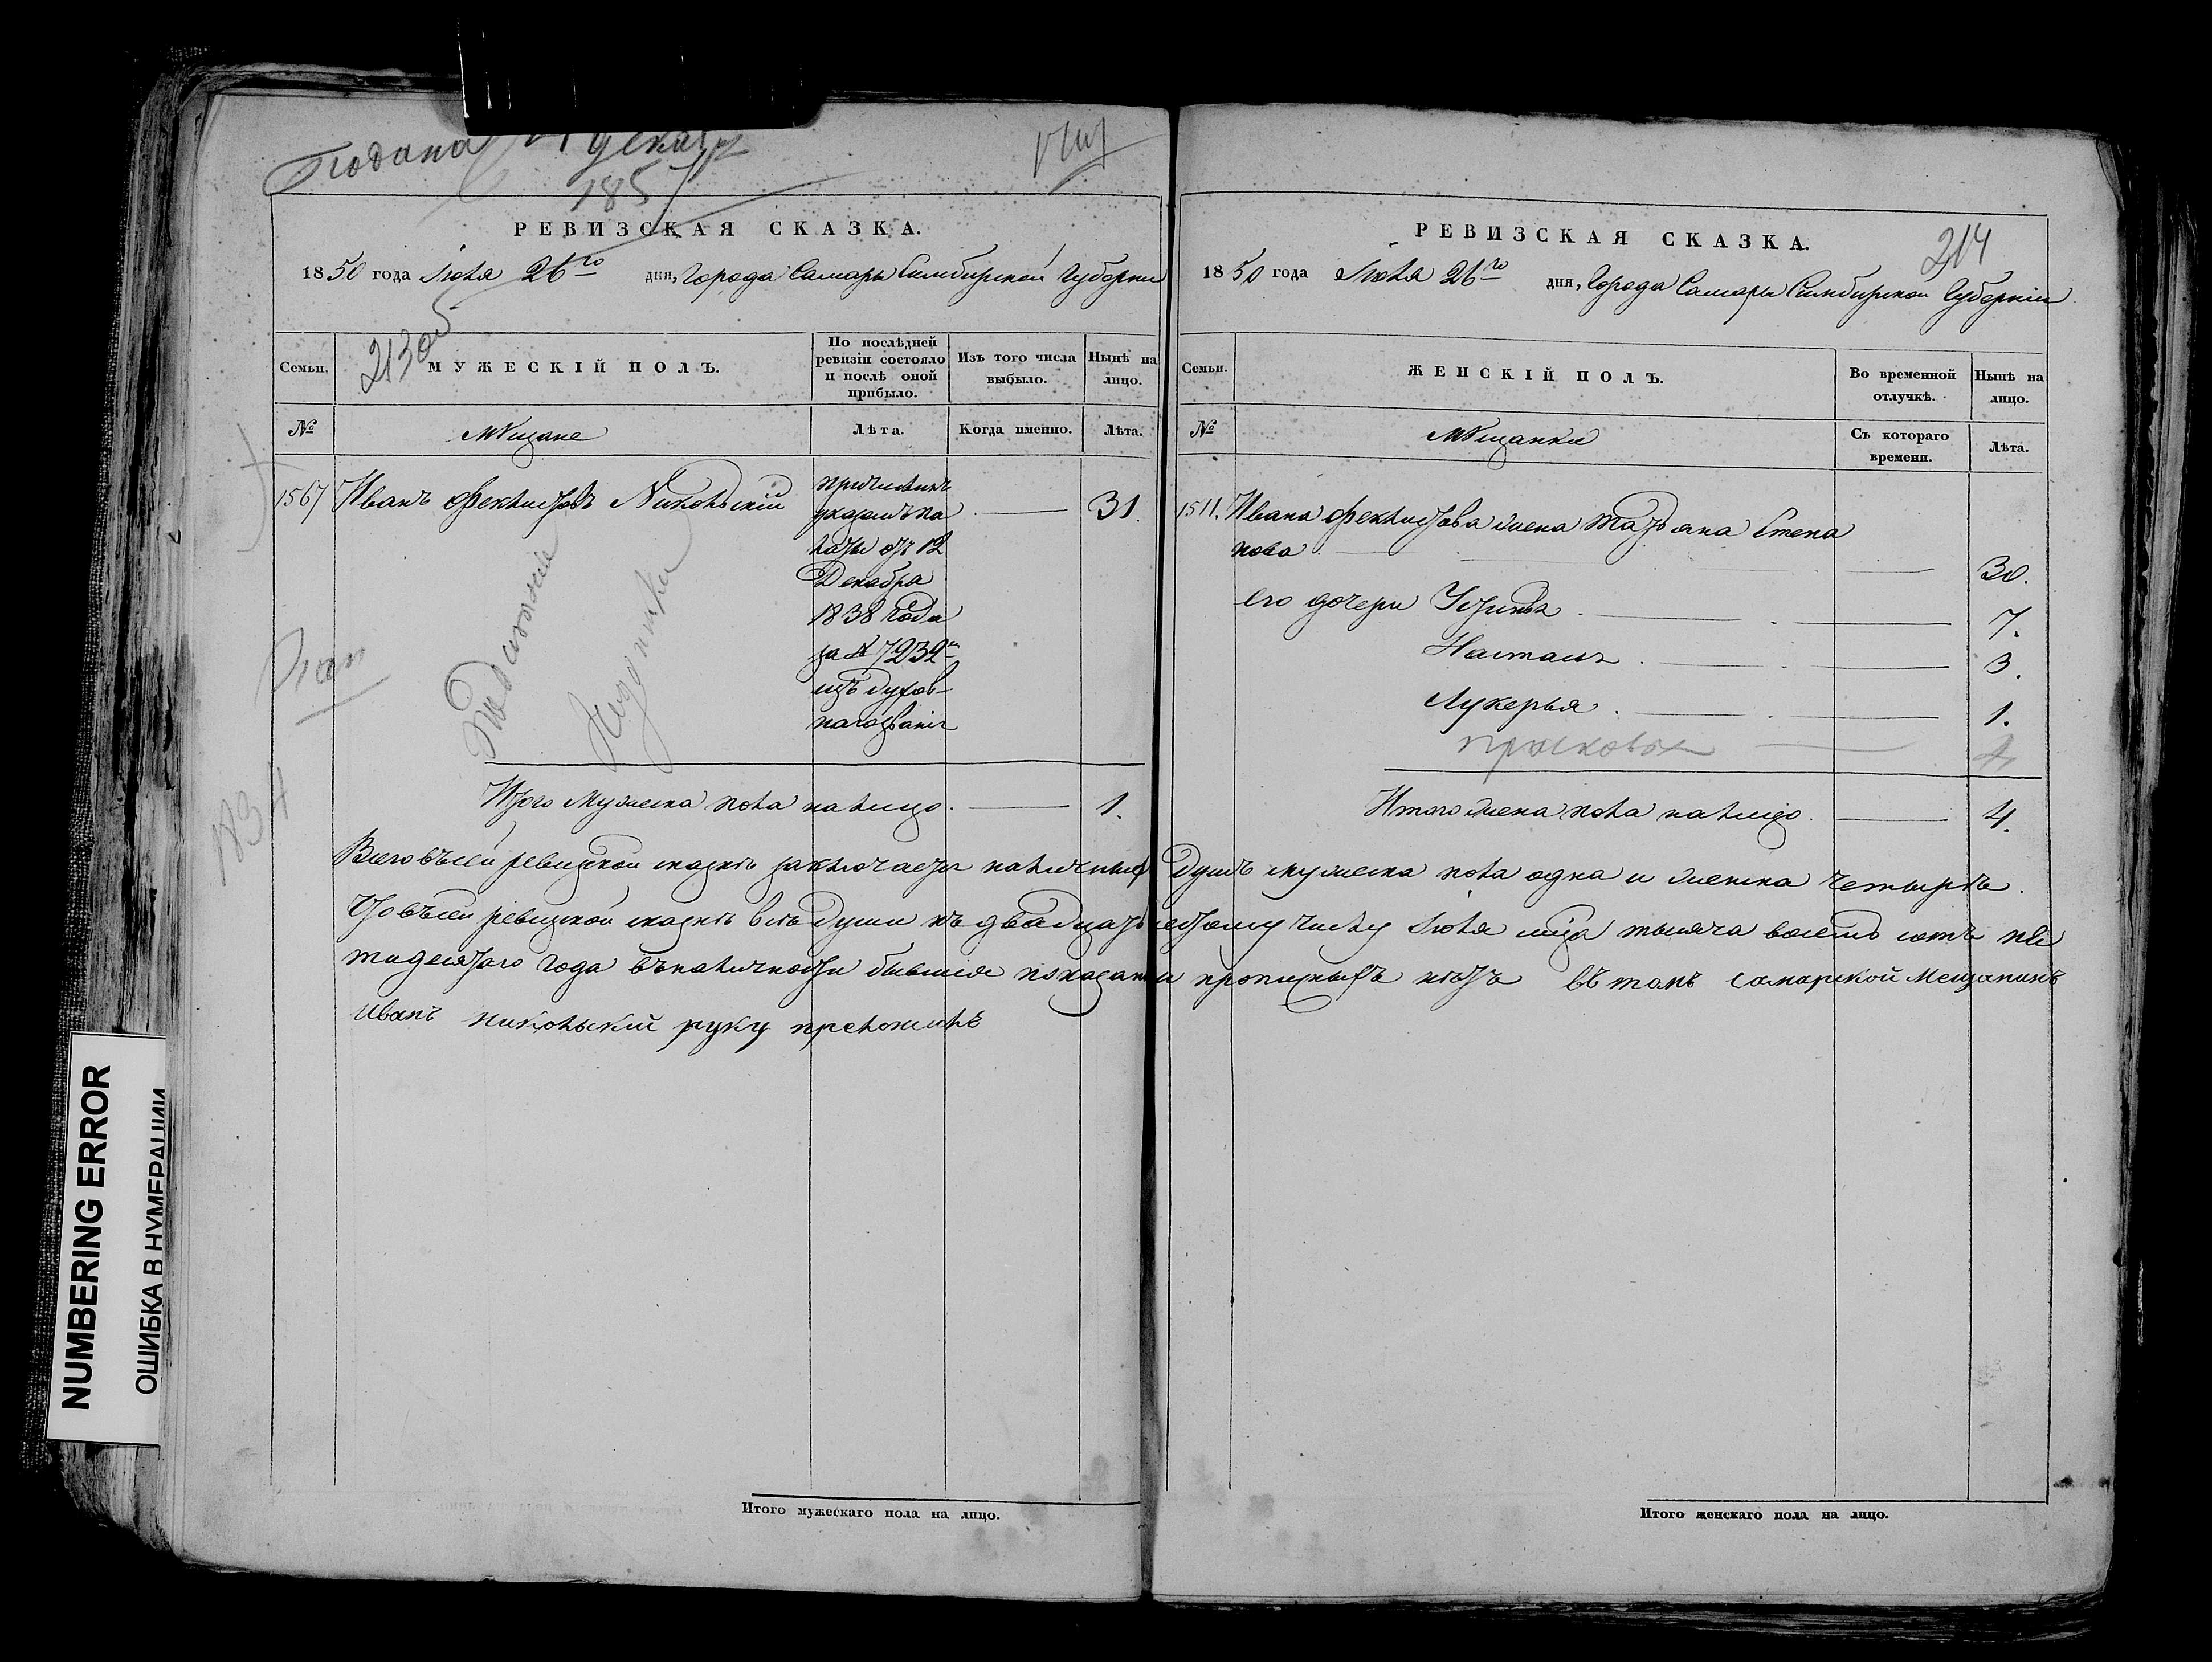 Подана
185
РЕВИЗСКАЯ СКАЗКА.
1850 года Іюля 26го дня, Города Самары Симбирской Губерніи
213об
Семьи.
МУЖЕСКІЙ ПОЛЪ.
По послѣдней ревизіи состояло и послѣ оной прибыло.
Изъ того числа выбыло.
Нынѣ на лицо.
№
Мѣщане
Лѣта.
Когда именно.
Лѣта.
1567 Иванъ Феклистовъ Никольскій
31.
причисленъ
указомъ па
латы отъ 12
Декабря
1838 года
за № 7232
изъ духов-
наго званія
Итого мужеска пола на лицо. 1.
1834
РЕВИЗСКАЯ СКАЗКА.
214
1850 года Іюля 26го дня, Города Самары Симбирской Губерніи
Семьи.
ЖЕНСКІЙ ПОЛЪ.
Во временной отлучкѣ.
Нынѣ на лицо.
№
Мѣщанки
Съ котораго времени.
Лѣта.
1511. Ивана Феклистова жена Татьяна Степа
нова 30.
его дочери Устинья 7.
Настасья 3.
Лукерья 1.
Прасковья
Итого женска пола на лицо. 4.
Всего въ сей ревизской сказкѣ заключается наличныхъ душъ мужеска пола одна и женска четыре.
Что въ сей ревизской сказкѣ всѣ души къ двадцать шестому числу Іюля мца тысяча восемь сотъ пя
тидесятаго года въ наличности бывшія показаны и прописныхъ нѣтъ въ томъ самарской мещанинъ
Иванъ никольский руку преложилъ
Итого мужескаго пола на лицо.
Итого женскаго пола на лицо.
NUMBERING ERROR
ОШИБКА В НУМЕРАЦИИ